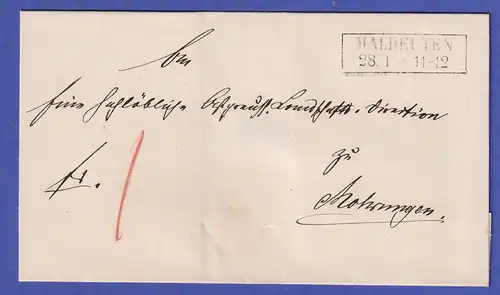 MALDEUTEN
28. 1 11-12
An
Eine Hochlöbliche Ostpreuss. Landschafts-Direktion
zu
fr.
1
Mohrungen.